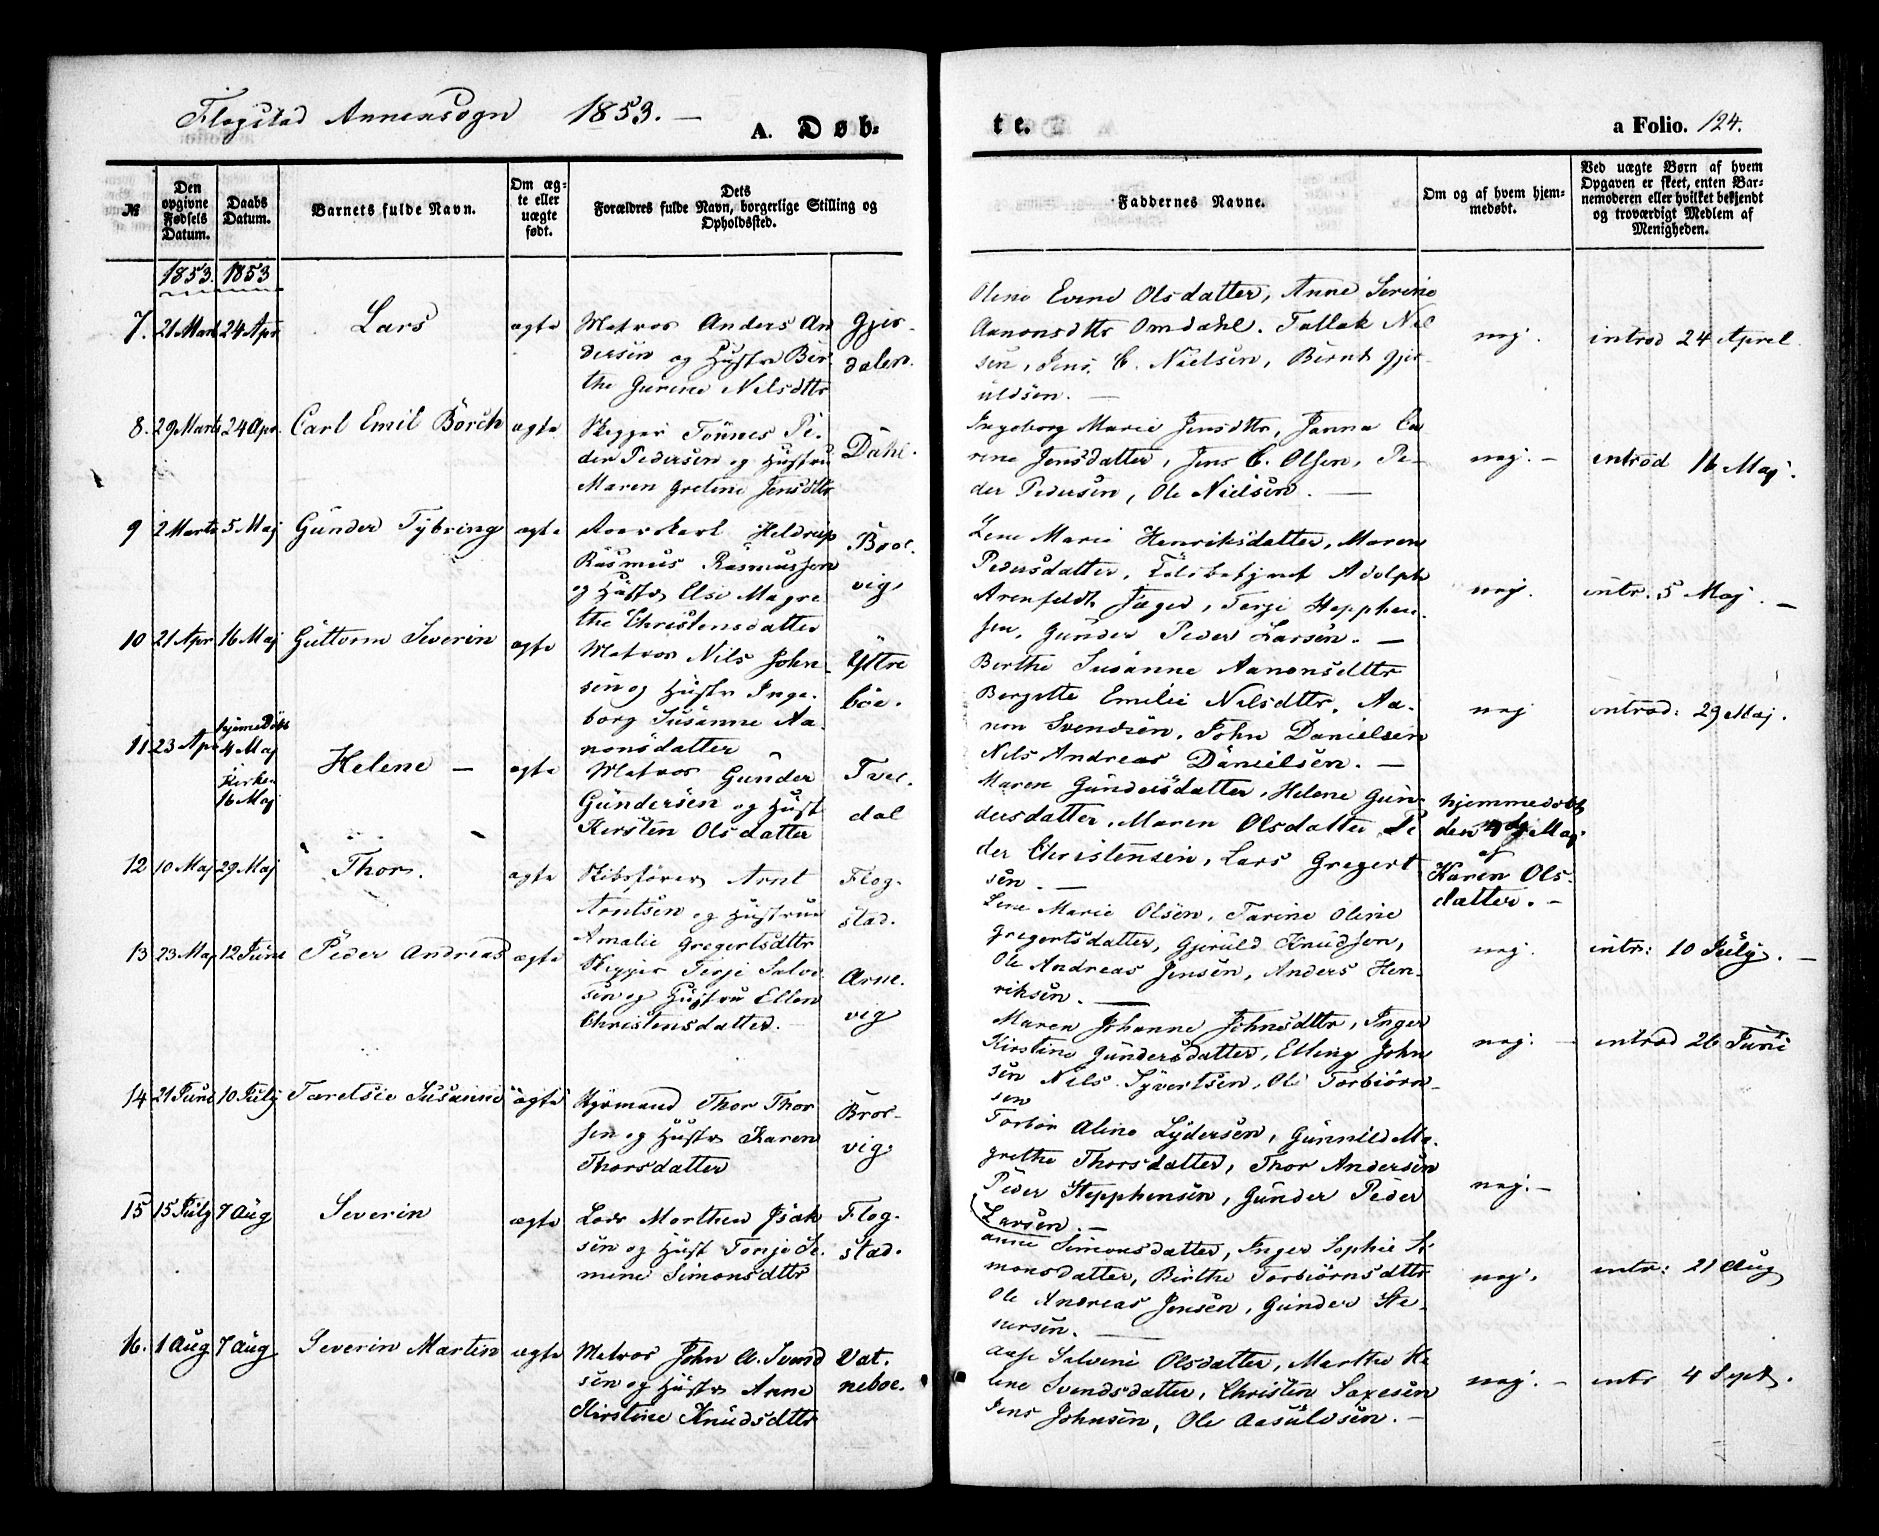 Flogstad Annexsogn 1853. —
A. Døb-
te.
a Folio. 124.
№
Den opgivne Fødsels Datum.
Daabs Datum.
Barnets fulde Navn.
Om ægte eller uægte født.
Dets Forældres fulde Navn, borgerlige Stilling og Opholdssted.
Faddernes Navne.
Om og af hvem hjemmedøbt.
Ved uægte Børn af hvem Opgaven er skeet, enten Barnemoderen eller hvilket bekjendt og troværdigt Medlem af Menigheden.
1853. 1853
7. 21 Marts 24 Apr Lars ægte
Matros Anders An
dersen og Hustr Bir
the Gurine Nilsdttr
Gjer-
dalen.
Oline Evene Olsdatter, Anne Serine
Aanonsdttr Omdahl. Tallak Niel
sen, Jens C. Nielsen, Bernt Gjer-
uldsen. —
nej.
introd 24 Aprel.
8. 29 Marts 24 Apr. Carl Emil Börch ægte
Skipper Tönnes Pe-
der Pedersen og Hustru
Maren Gretine Jensdttr
Dahl.
Ingeborg Marie Jensdttr, Janna Ca
rine Jensdatter, Jens C. Olsen, Pe-
der Pedersen, Ole Nielsen. —
nej. —
introd 16 Maj.
9 2 Marts 5 Maj Gunder Tybring ægte
Heldrup
Rasmus Rasmussen
og Hustr Else Magre
the Christensdatter
Broe-
vig
Lene Marie Henriksdatter, Maren
Pedersdatter, Adolph
Arenfeldt Jæger, Terje Stepphen-
sen, Gunder Peder Larsen. —
nej.
intr. 5 Maj. —
10 21 Apr 16 Maj Guttorm Severin ægte
Matros Nils John
sen og Hustr Inge-
borg Susanne Aa
nonsdatter
Ytre
böe.
Birthe Susanne Aanonsdttr
Bergette Emilie Nilsdttr, Aa-
non Svendsen, John Danielsen
Nils Andreas Danielsen. —
nej
introd: 29 Maj.
11 23 Apr hjemedöbt
4 Maj
Kirken
16 Maj
Helene — ægte
Matros Gunder
Gundersen og Hust
Kirsten Olsdatter
Tvei-
dal
Maren Gundersdatter, Helene Gun-
dersdatter, Maren Olsdatter Pe
der Christensen, Lars Gregert
sen. —
hjemmedöbt
den 4de Maj
af
Karen Ols-
datter. —
12 10 Maj 29 Maj Thor. ægte
Skibsförer Arnt
Arntsen og Hustrue
Amalie Gregertsdttr
Flog-
stad.
Lene Marie Olsen, Tarine Oline
Gregertsdatter, Gjeruld Knudsen,
Ole Andreas Jensen, Anders Hen-
riksen. —
nej.
intr: 10 July. —
13 23 Maj 12 Juni Peder Andreas ægte
Skipper Terje Salve
sen og Hustru Ellen
Christensdatter. —
Arne-
vig
Maren Johanne Johnsdttr, Inger
Kirstine Gundersdatter, Elling John
sen Nils Syvertsen, Ole Torbiörn-
sen
nej. —
introd 26 Juni
14 21 Juni 10 July Taretsie Susanne ægte
Styrmand Thor Thor
sen og Hustr Karen
Thorsdatter
Broe-
vig
Torbör Aline Lydersen, Gunnild Ma-
grethe Thorsdatter, Thor Andersen
Peder Stepphensen, Gunder Peder
Larsen. —
nej. —
15 15 July 7 Aug Severin ægte
Lods Morthen Isak
sen og Hust Tonje Se-
mine Simonsdttr
Flog-
stad.
Anne Simonsdatter, Inger Sophie Si
monsdatter, Birthe Torbiörnsdttr
Ole Andreas Jensen, Gunder
sen. —
nej.
intr: 21 Aug
16. 1 Aug 7 Aug Severin Martin ægte
Matros John A. Svend
sen og Hustr Anne
Kirstine Knudsdttr
Vat-
neboe.
Aase Salvine Olsdatter, Marthe He
lene Svendsdatter, Christen Saxesen
Jens Johnsen, Ole Aasuldsen. —
nej. —
intr 4 Sept.